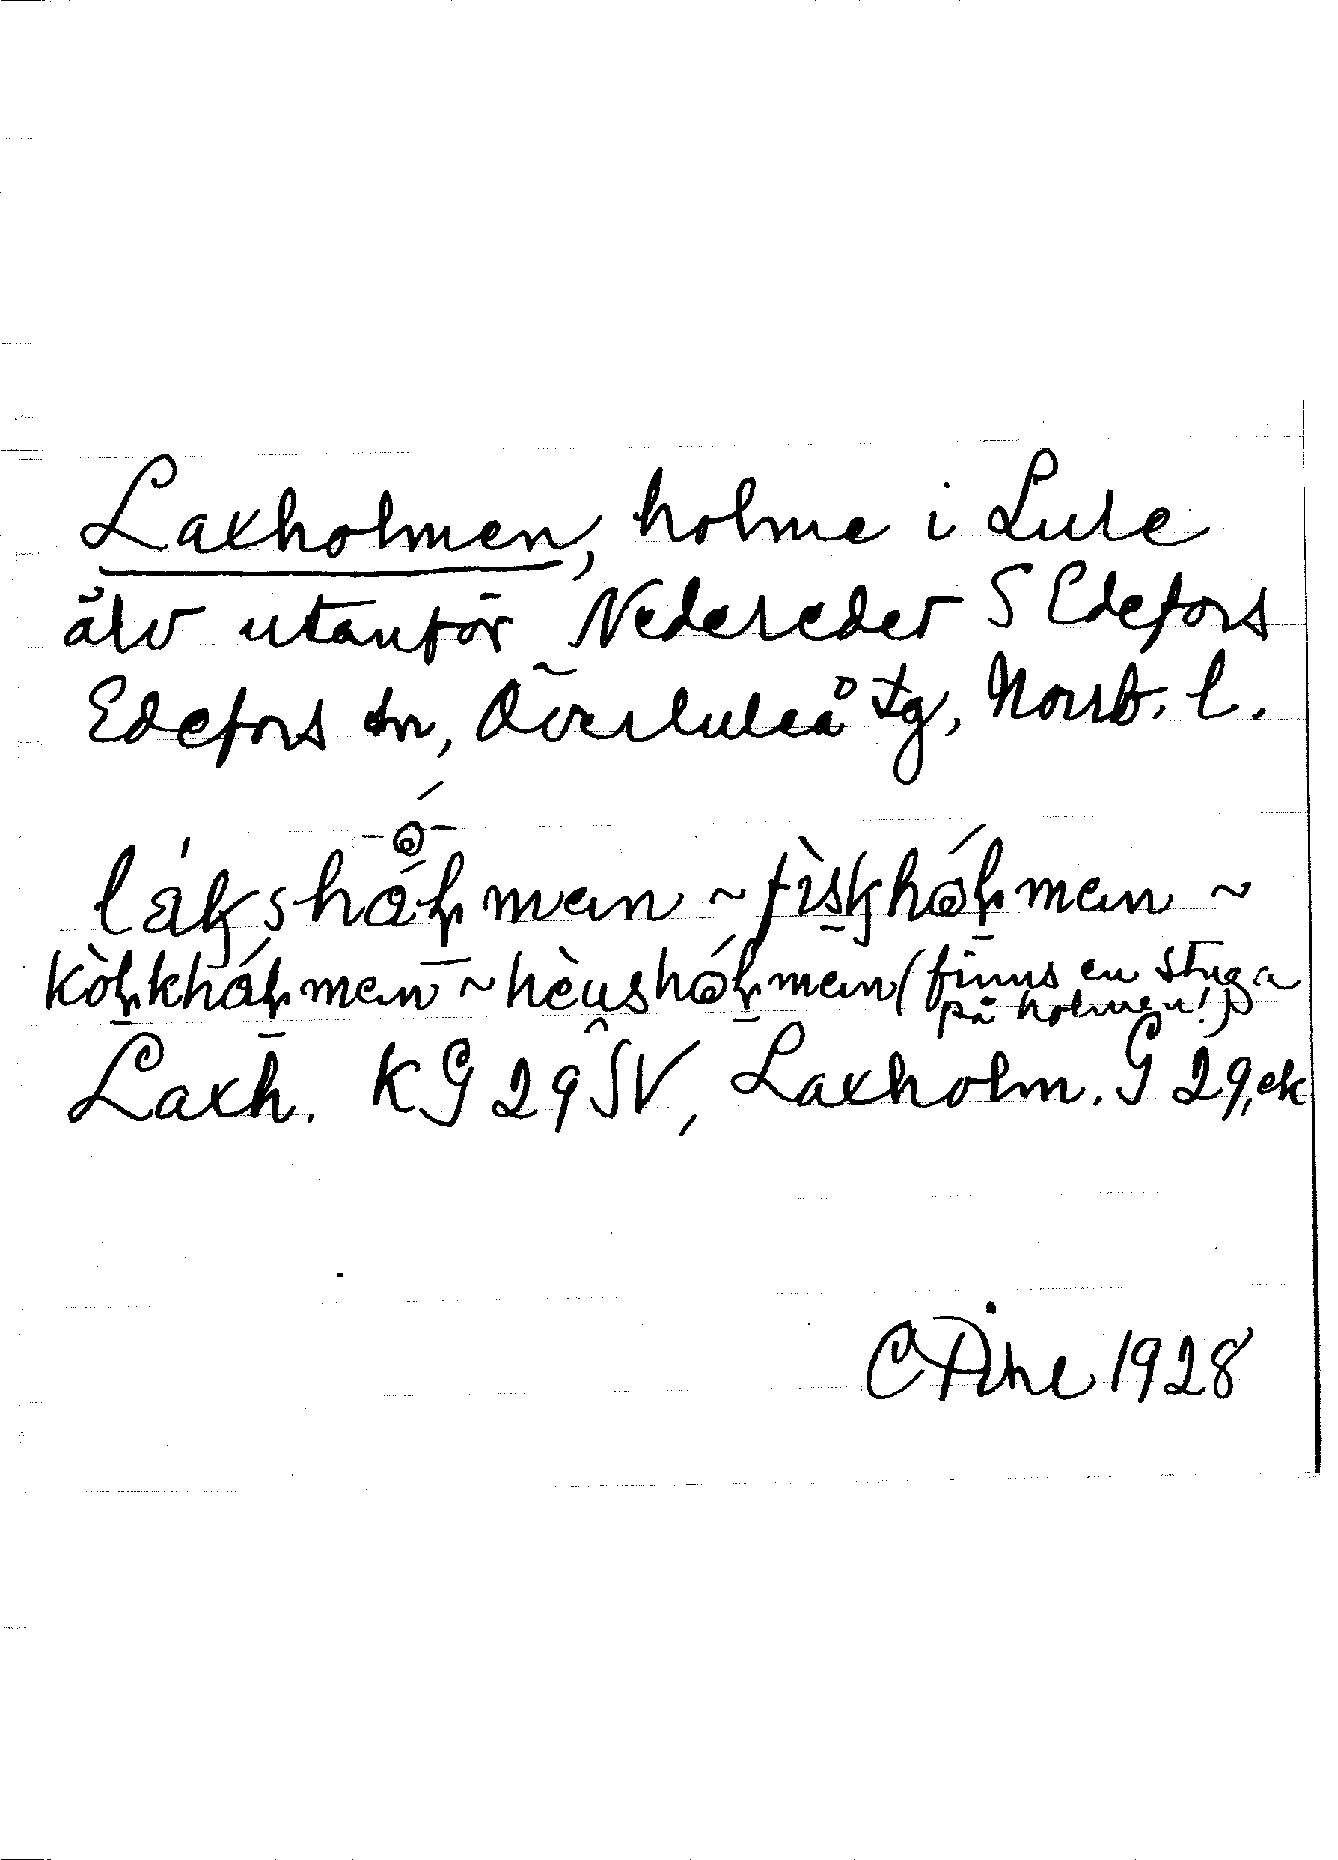 Laxholmen, holme i Lule
älv utanför Nederedet S Edefors
Edefors sn, Överluleå tg, Norrb. l.
lákshólmen ~ fìskhólmen ~
kòlkhólmen ~ hèushólmen (finns en stuga
på holmen!)
Laxh. KG 29 SV, Laxholm. G 29, ek
1928